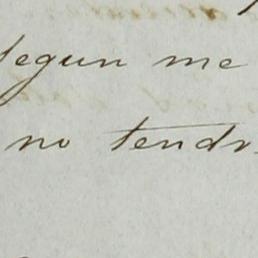 segun me
no tendr